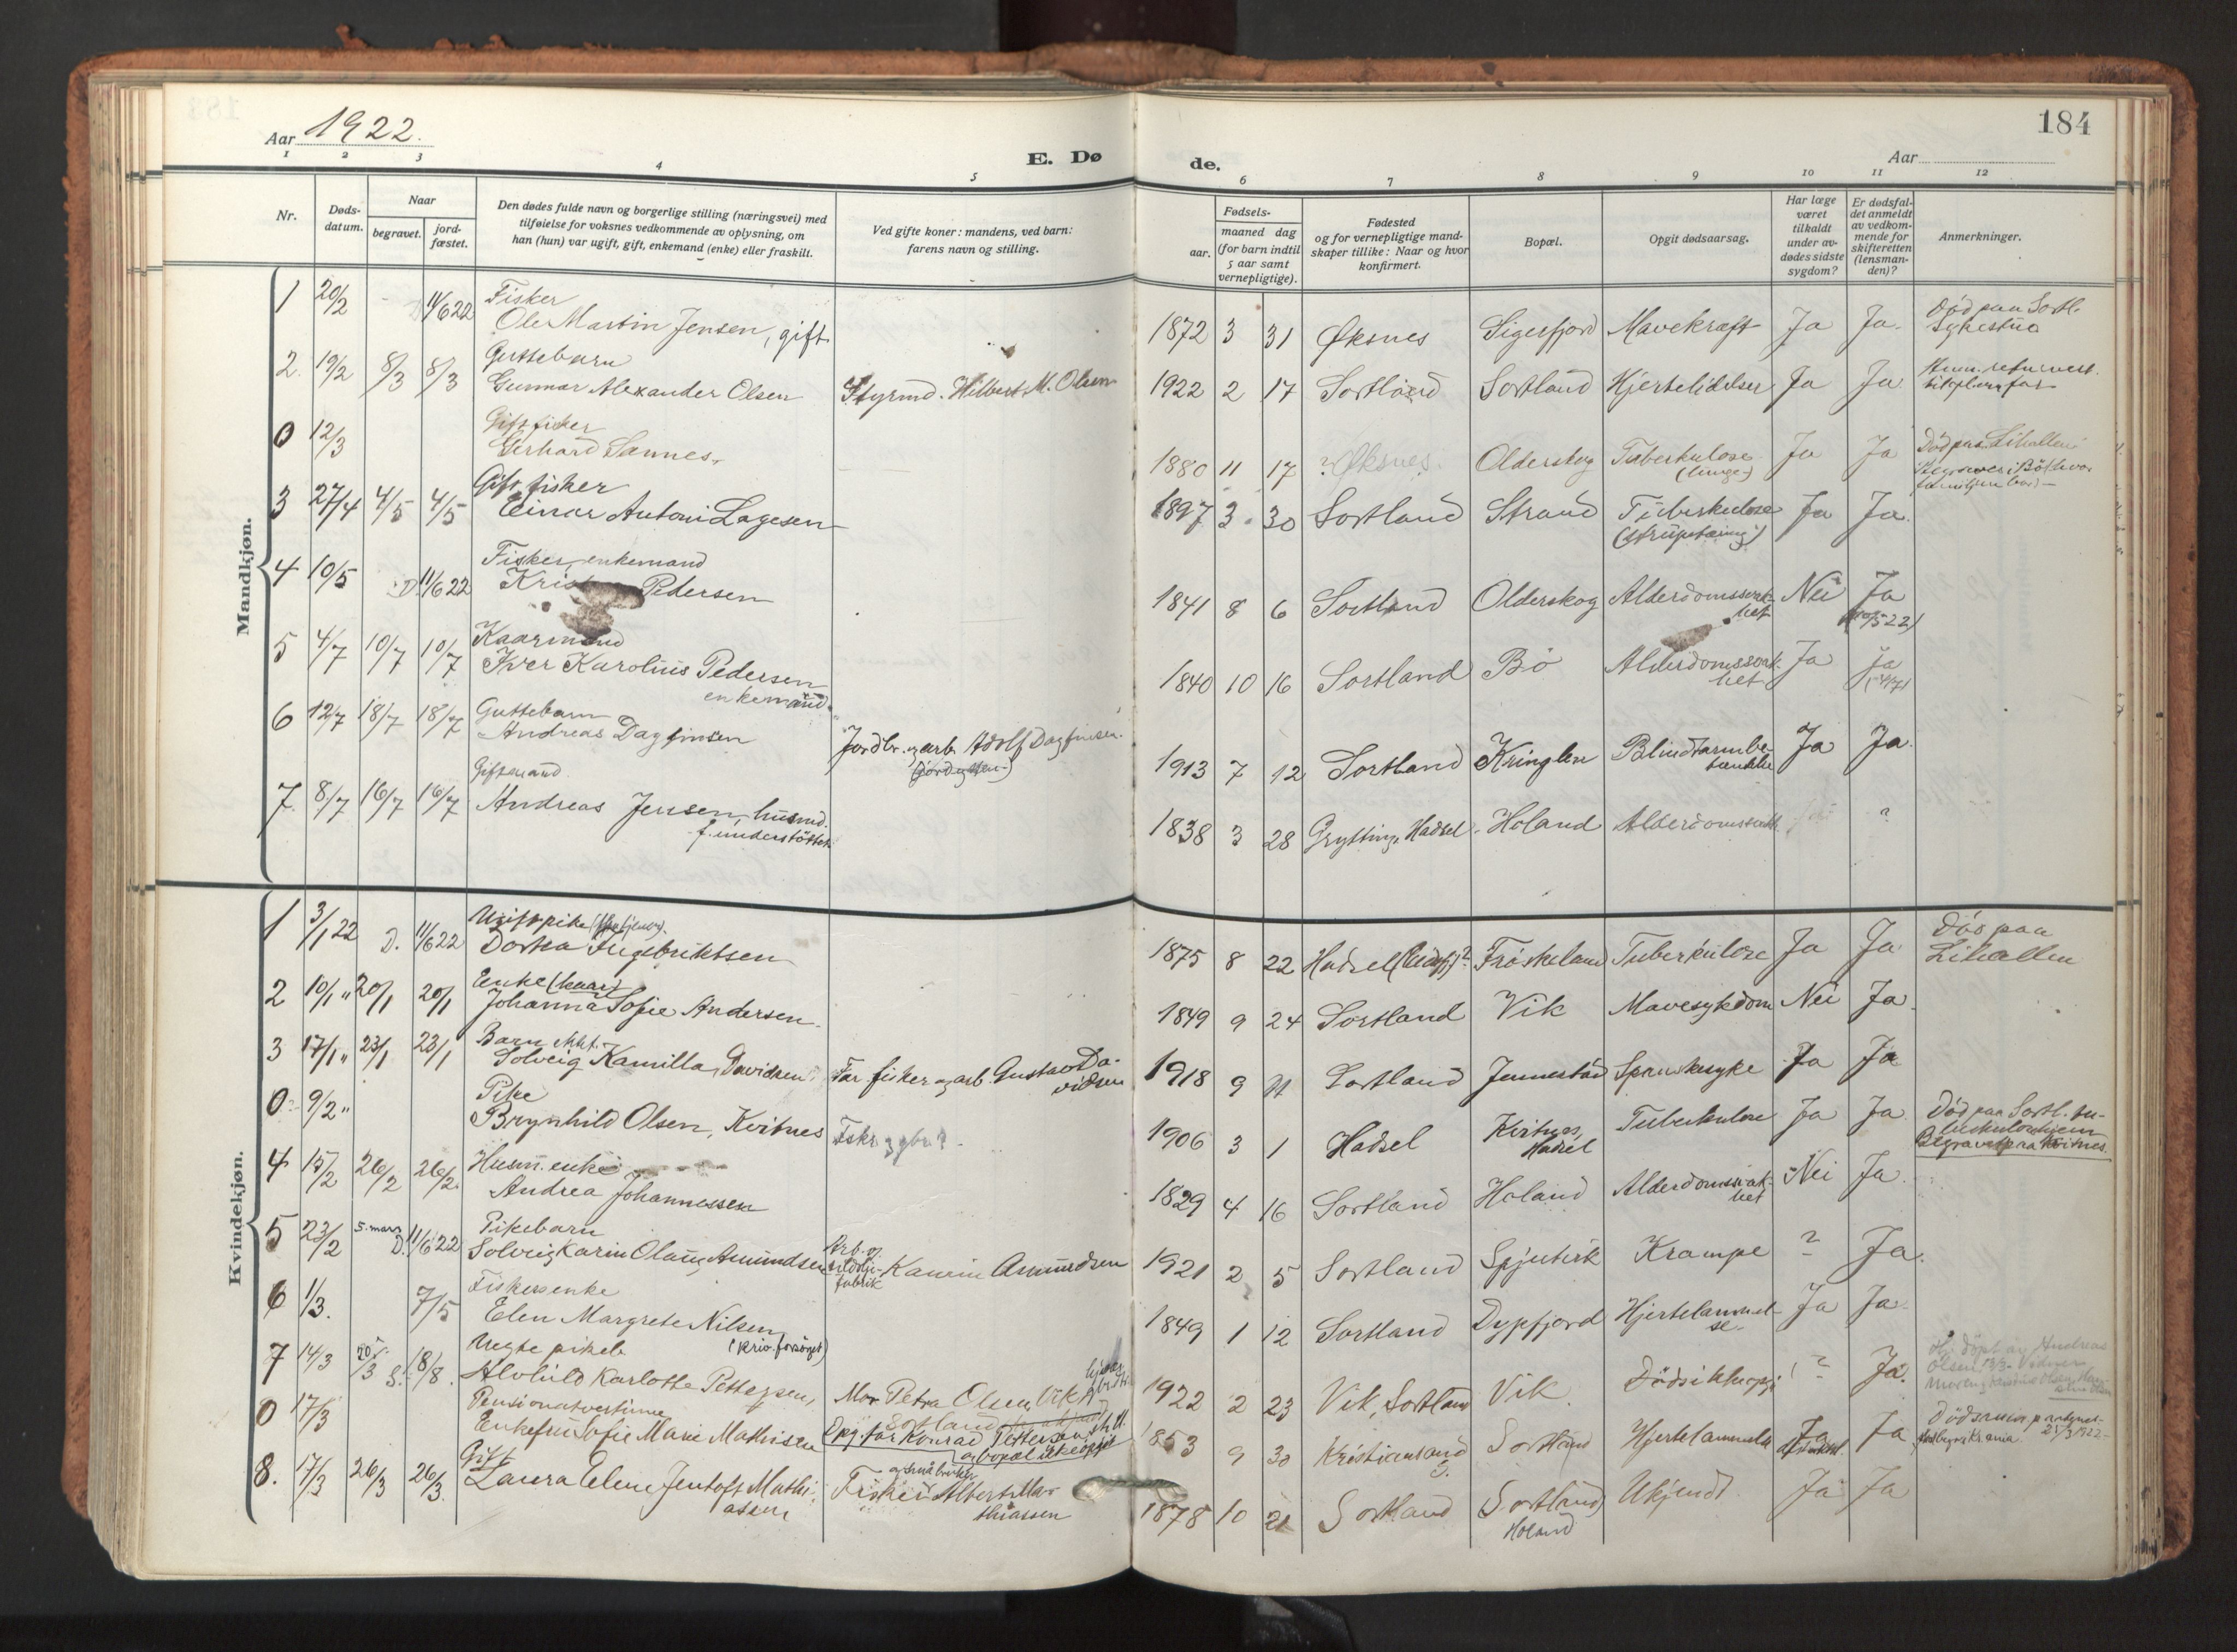 184
Aar 1922.
E. Døde.
Aar
1 2 3 4 5 6 7 8 9 10 11 12
Nr.
Døds-
datum.
Naar
begravet.
jord-
fæstet.
Den dødes fulde navn og borgerlige stilling (næringsvei) med
tilføielse for voksnes vedkommende av oplysning, om
han (hun) var ugift, gift, enkemand (enke) eller fraskilt.
Ved gifte koner: mandens, ved barn:
farens navn og stilling.
Fødsels-
aar.
maaned dag
(for barn indtil
5 aar samt
vernepligtige).
Fødested
og for vernepligtige mand-
skaper tillike: Naar og hvor
konfirmert.
Bopæl.
Opgit dødsaarsag.
Har læge
været
tilkaldt
under av-
dødes sidste
sygdom?
Er dødsfal-
det anmeldt
av vedkom-
mende for
skifteretten
(lensman-
den)?
Anmerkninger.
Mandkjøn.
1 20/2 11/6 22 Fisker
Ole Martin Jensen, gift 1872 3 31 Øksnes Sigerfjord Mavekræft Ja Ja. Död paa Sortl.
Sykestue
2. 19/2 8/3 8/3 Guttebarn
Gunnar Alexander Olsen Styrmd. Hilbert M. Olsen 1922 2 17 Sortland Sortland Hjertelidelser Ja Ja
0 12/3 Gift fisker
Gerhard Sannes. 1880 11 17 ? Øksnes. Olderskog Tuberkulose Ja Ja Död paa Lihallen
(lunge-)
3 27/4 4/5 4/5 Gift fisker
Einar Antoni Lagesen 1897 3 30 Sortland Strand Tuberkulose Ja Ja.
(strupetæring)
4 10/5 D. 11/6 22 Fisker, enkemand
Pedersen 1841 8 6 Sortland Olderskog Alderdomssvak- Nei Ja
het
5 4/7 10/7 10/7 Kaarmand
Iver Karolius Pedersen 1840 10 16 Sortland Bö Alderdomssvak- Ja Ja
enkemand. het
6 12/7 18/7 18/7 Guttebarn
Andreas Dagfinsen Jordbr. og arb. Adolf Dagfinsen. 1913 7 12 Sortland Kringlen Blindtarmbe- Ja Ja.
tændelse
7. 8/7 16/7 16/7 Gift mand
Andreas Jensen, husmd. 1838 3 28 Grytting, Hadsel Holand Alderdomssvakh. ?
f. understöttet.
Kvindekjøn.
1 3/1 22 D. 11/6 22 Ugift pike
Dortea Ingebriktsen 1875 8 22 Hadsel Fröskeland Tuberkulose Ja Ja Död paa
Lihallen
2 10/1 " 20/1 20/1 Enke (kaar)
Johanna Sofie Andersen. 1849 9 24 Sortland Vik Mavesykdom Nei Ja.
3 17/1 " 23/1 23/1 Barn
Solveig Kamilla Davidsen Far fisker og arb. Gustav Da- 1918 9 Sortland Jennestad Spanskesyke Ja Ja
vidsen
0 9/2 " Pike
Brynhild Olsen, Kvitnes 1906 3 1 Hadsel Kvitnes, Tuberkulose Ja Ja Död paa Sortl. tu-
Hadsel berkulosehjem
Begravet paa Kvitnes.
4 15/2 26/2 26/2. Husm. enke
Andrea Johannessen 1829 4 16 Sortland Holand Alderdomssvak- Nei Ja.
het
5 23/2 5. mars D. 11/6 22 Pikebarn
Solveig Karin Olaug Amundsen Arb. v.
sildolje- Kaurin Amundsen 1921 2 5 Sortland Spjutvik Krampe ? Ja.
fabrik
6 1/3. 7/5 Fiskers enke
Elen Margrete Nilsen 1849 1 12 Sortland Dypfjord Hjertelammel- Ja Ja.
(priv. forsørget) se.
7 14/3 S. 18/8. Uegte pikeb.
Alvhild Karlotte Pettersen, Mor Petra Olsen Vik 1922 2 23 Vik, Sortland Vik. ? Ja. Hj. döpt av Andreas
Olsen 13/3.
0 17/3 Pensionatvertinne
Enkefru Sofie Marie Mathisen Opg. far Konrad Pettersen 1853 9 30 Kristiansand Sortland Hjertelammelse Ja Ja
S.
og bopæl ikke opgit
8. 17/3 26/3 26/3. Gift
Laura Elene Jentoft Mathi- Fisker Albert Ma- 1878 10 21 Sortland Sortland Ukjendt Ja Ja
asen, thiassen Holand